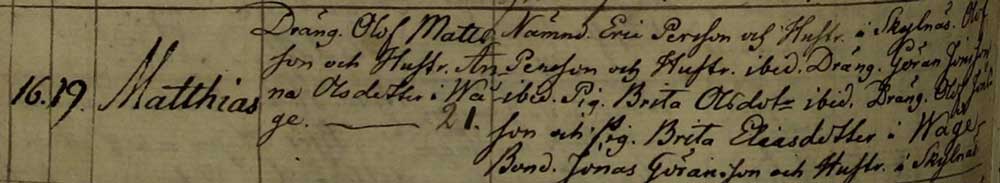 16. 19. Matthias
Dräng. Olof Matts
son och Hustr. An
na Olsdotter i Wå
ge. — 21.
Nämnd. Eric Persson och Hustr. i Skylnäs. Olof
Persson och Hustr. ibid. Dräng. Göran Jonsson
ibid. Pig. Brita Olsdotr ibid. Dräng. Olof Jons
son och Pig. Brita Eliasdotter i Wåge,
Bond. Jonas Göransson och Hustr. i Skylnäs